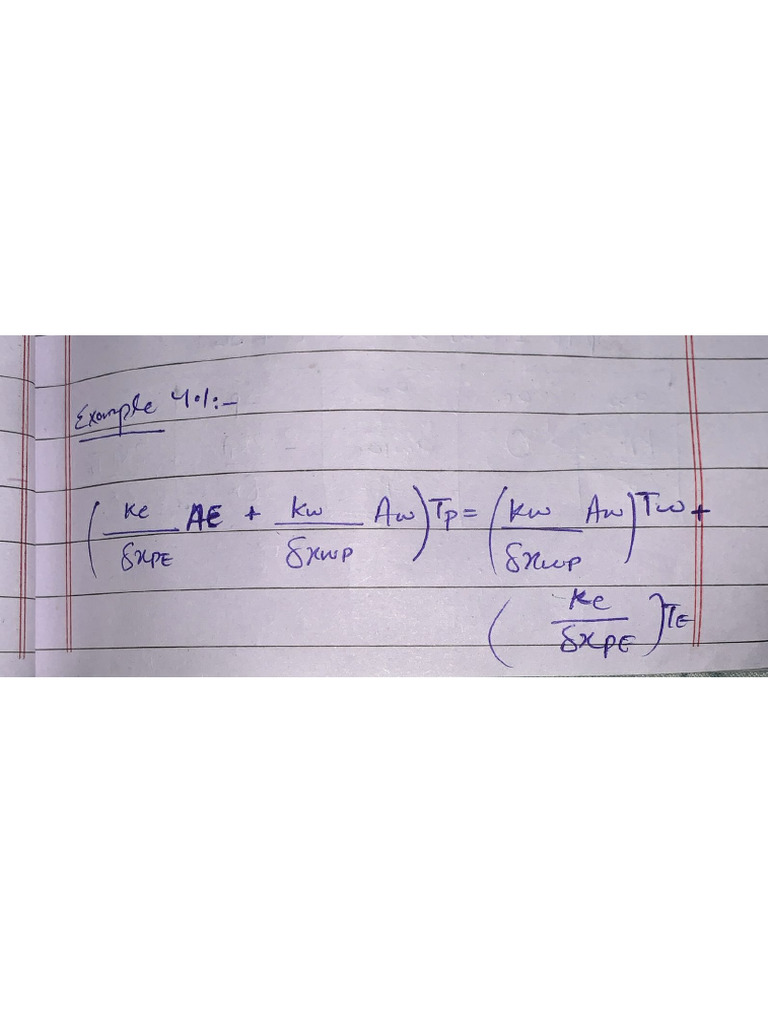 Example 4.1:-
(ke/δxPE AE + kw/δxwP Aw)Tp = (kw/δxwP Aw)Tw +
(ke/δxPE)TE